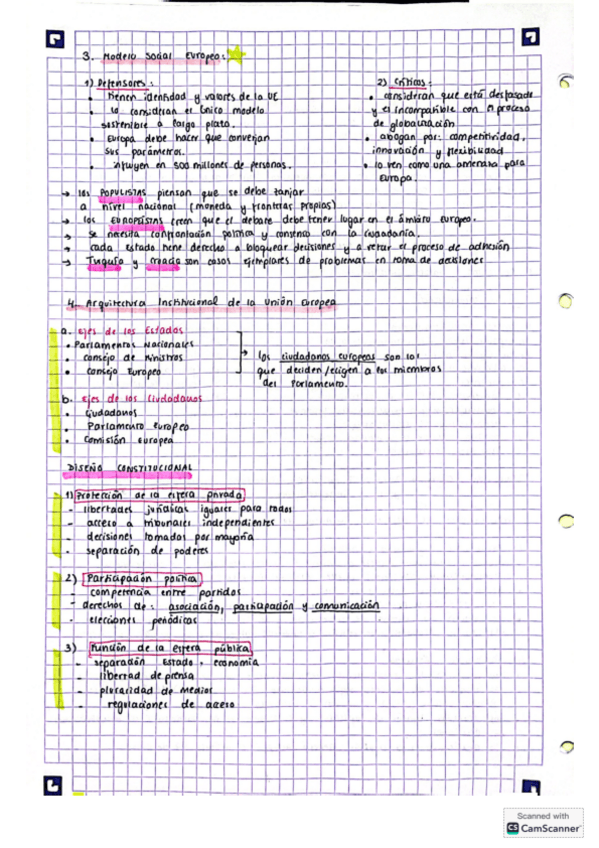 3. Modelo Social Europeo:
1) Defensores:
• tienen identidad y valores de la UE
• lo consideran el único modelo
sostenible a largo plazo.
• Europa debe hacer que converjan
sus parámetros.
• influyen en 500 millones de personas.
2) Críticas:
• consideran que está desfasado
y es incompatible con el proceso
de globalización
• abogan por: competitividad,
innovación y flexibilidad
• lo ven como una amenaza para
Europa.
→ los POPULISTAS piensan que se debe zanjar
a nivel nacional (moneda y fronteras propias)
→ los EUROPEÍSTAS creen que el debate debe tener lugar en el ámbito europeo.
→ se necesita confrontación política y consenso con la ciudadanía.
→ cada estado tiene derecho a bloquear decisiones y a vetar el proceso de adhesión
→ Turquía y Croacia son casos ejemplares de problemas en toma de decisiones
4. Arquitectura Institucional de la Unión Europea
a. Ejes de los Estados
• Parlamentos Nacionales
• consejo de Ministros
• consejo Europeo
→ los ciudadanos europeos son los
que deciden/eligen a los miembros
del Parlamento.
b. Ejes de los Ciudadanos
• Ciudadanos
• Parlamento Europeo
• Comisión Europea
DISEÑO CONSTITUCIONAL
1) Protección de la esfera privada
- libertades jurídicas iguales para todos
- acceso a tribunales independientes
- decisiones tomadas por mayoría
- separación de poderes
2) Participación política
- competencia entre partidos
- derechos de: asociación, participación y comunicación
- elecciones periódicas
3) Función de la esfera pública
- separación Estado - economía
- libertad de prensa
- pluralidad de medios
- regulaciones de acceso
Scanned with
CS CamScanner